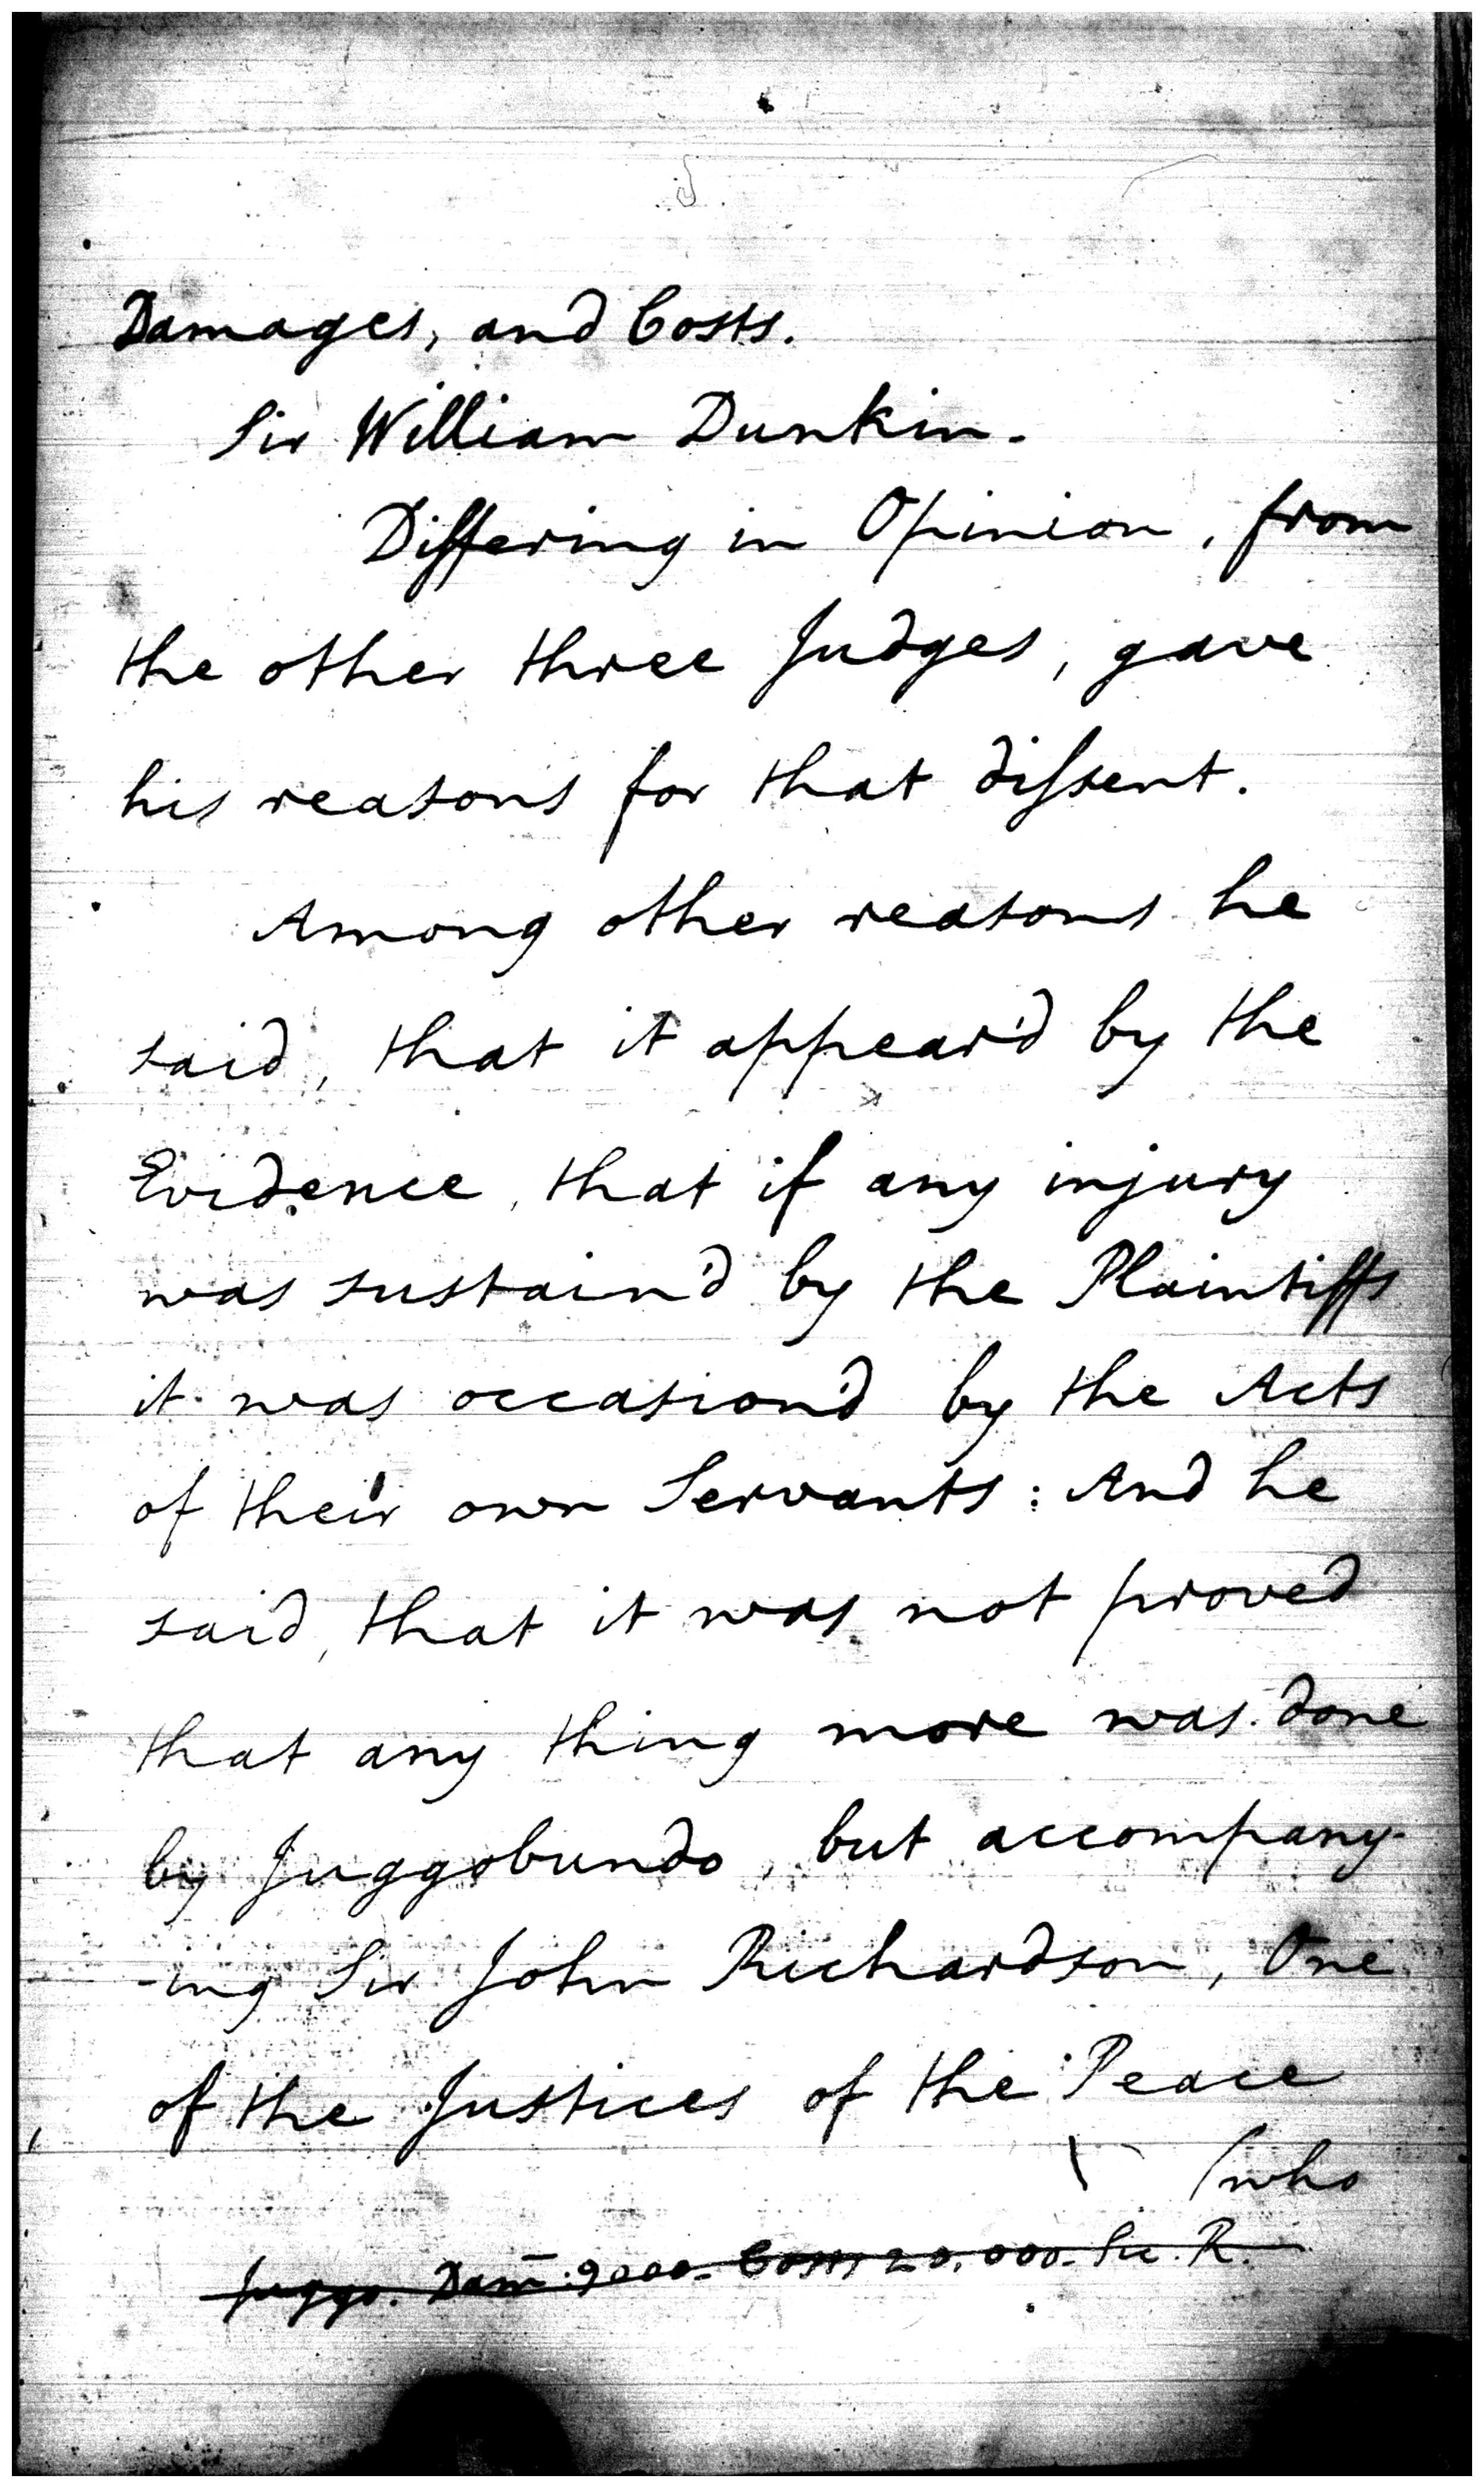 Damages, and Costs.
Sir William Dunkin.
Differing in Opinion, from
the other three Judges, gave
his reasons for that dissent.
Among other reasons he
said, that it appear'd by the
Evidence, that if any injury
was sustain'd by the Plaintiffs
it was occasion'd by the Acts
of their own Servants: And he
said, that it was not proved
that any thing more was done
by Juggobundo, but accompany-
-ing Sir John Richardson, One
of the Justices of the Peace
(who
Juggo. Dam: 9000. Costs 20,000. Sic. R.